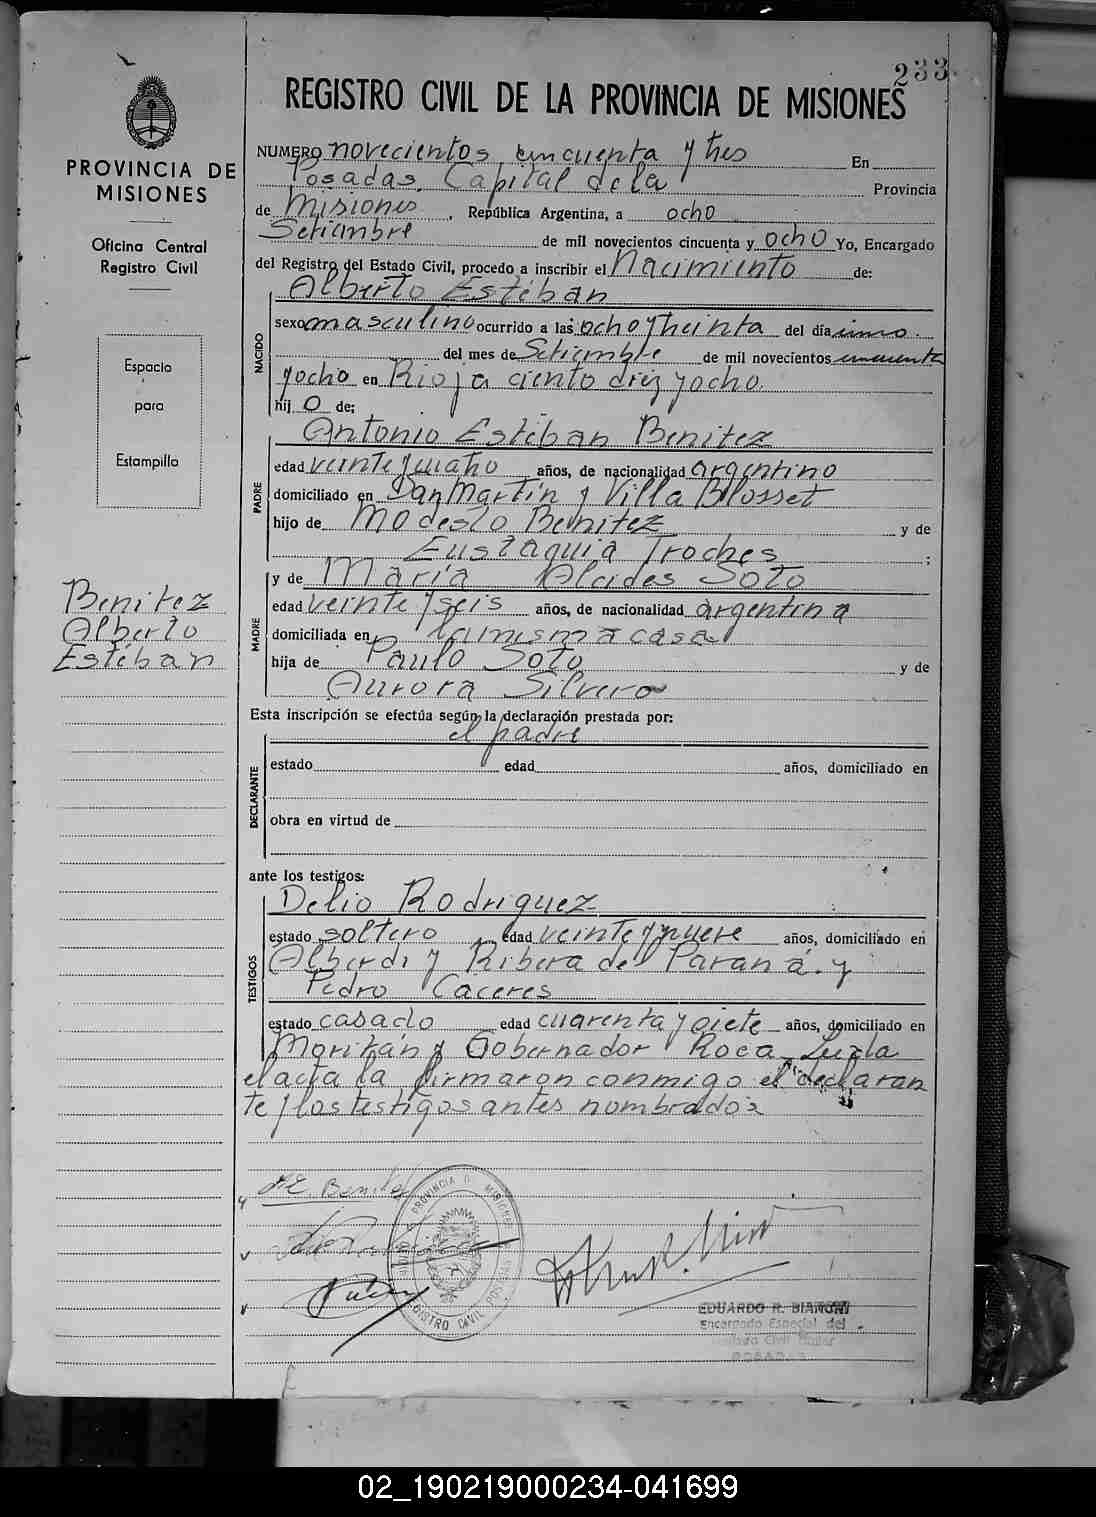 233
REGISTRO CIVIL DE LA PROVINCIA DE MISIONES
PROVINCIA DE
MISIONES
Oficina Central
Registro Civil
Espacio
para
Estampilla
Benitez
Alberto
Estéban
NUMERO novecientos cincuenta y tres En
Posadas, Capital de la Provincia
de Misiones, República Argentina, a ocho
Setiembre de mil novecientos cincuenta y ocho Yo, Encargado
del Registro del Estado Civil, procedo a inscribir el Nacimiento de:
NACIDO
Alberto Estéban
sexo masculino ocurrido a las ocho y treinta del día uno.
del mes de Setiembre de mil novecientos cincuenta
y ocho en Rioja ciento diez y ocho.
hij o de;
PADRE
Antonio Estéban Benitez
edad veinte y cuatro años, de nacionalidad argentino
domiciliado en San Martín y Villa Blosset
hijo de Modesto Benitez y de
Eustaquia Troches ;
MADRE
y de María Alcides Soto
edad veinte y seis años, de nacionalidad argentina
domiciliada en la misma casa
hija de Paulo Soto y de
Aurora Silvero
Esta inscripción se efectúa según la declaración prestada por:
DECLARANTE
el padre
estado edad años, domiciliado en
obra en virtud de
ante los testigos:
TESTIGOS
Delio Rodriguez
estado soltero edad veinte y nueve años, domiciliado en
Alberdi y Ribera del Paraná. y
Pedro Caceres
estado casado edad cuarenta y siete años, domiciliado en
y Gobernador Roca
el acta la firmaron conmigo el declaran
te y los testigos antes nombrados
A E. Benitez
PROVINCIA DE MISIONES
REGISTRO CIVIL POSADAS
EDUARDO R. BIANCHI
Encargado Especial del
Registro Civil
POSADAS
02_190219000234-041699